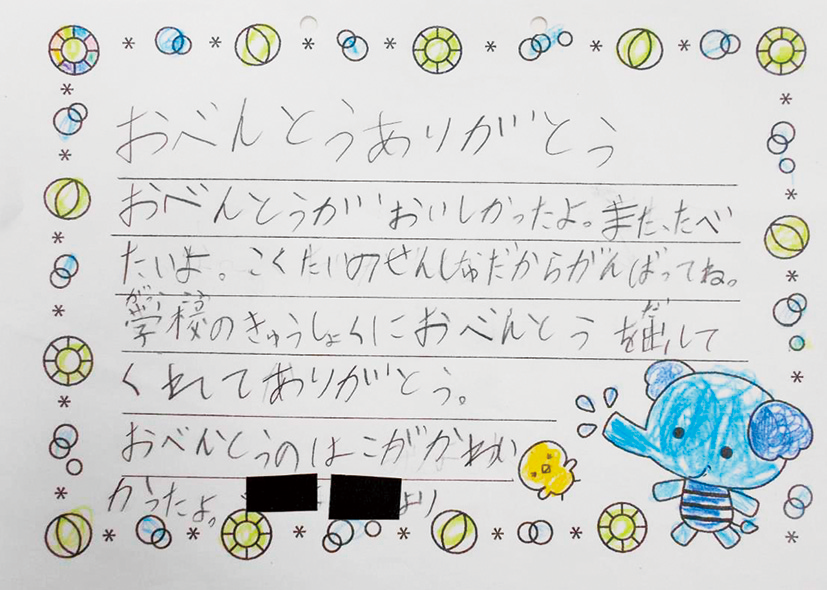 おべんとうありがとう
おべんとうが おいしかったよ。また、たべ
たいよ。こくたいのせんしゅだからがんばってね。
がっこう だ
学校のきゅうしょくにおべんとうを出して
くれてありがとう。
おべんとうのはこががかわい
かったよ。 より